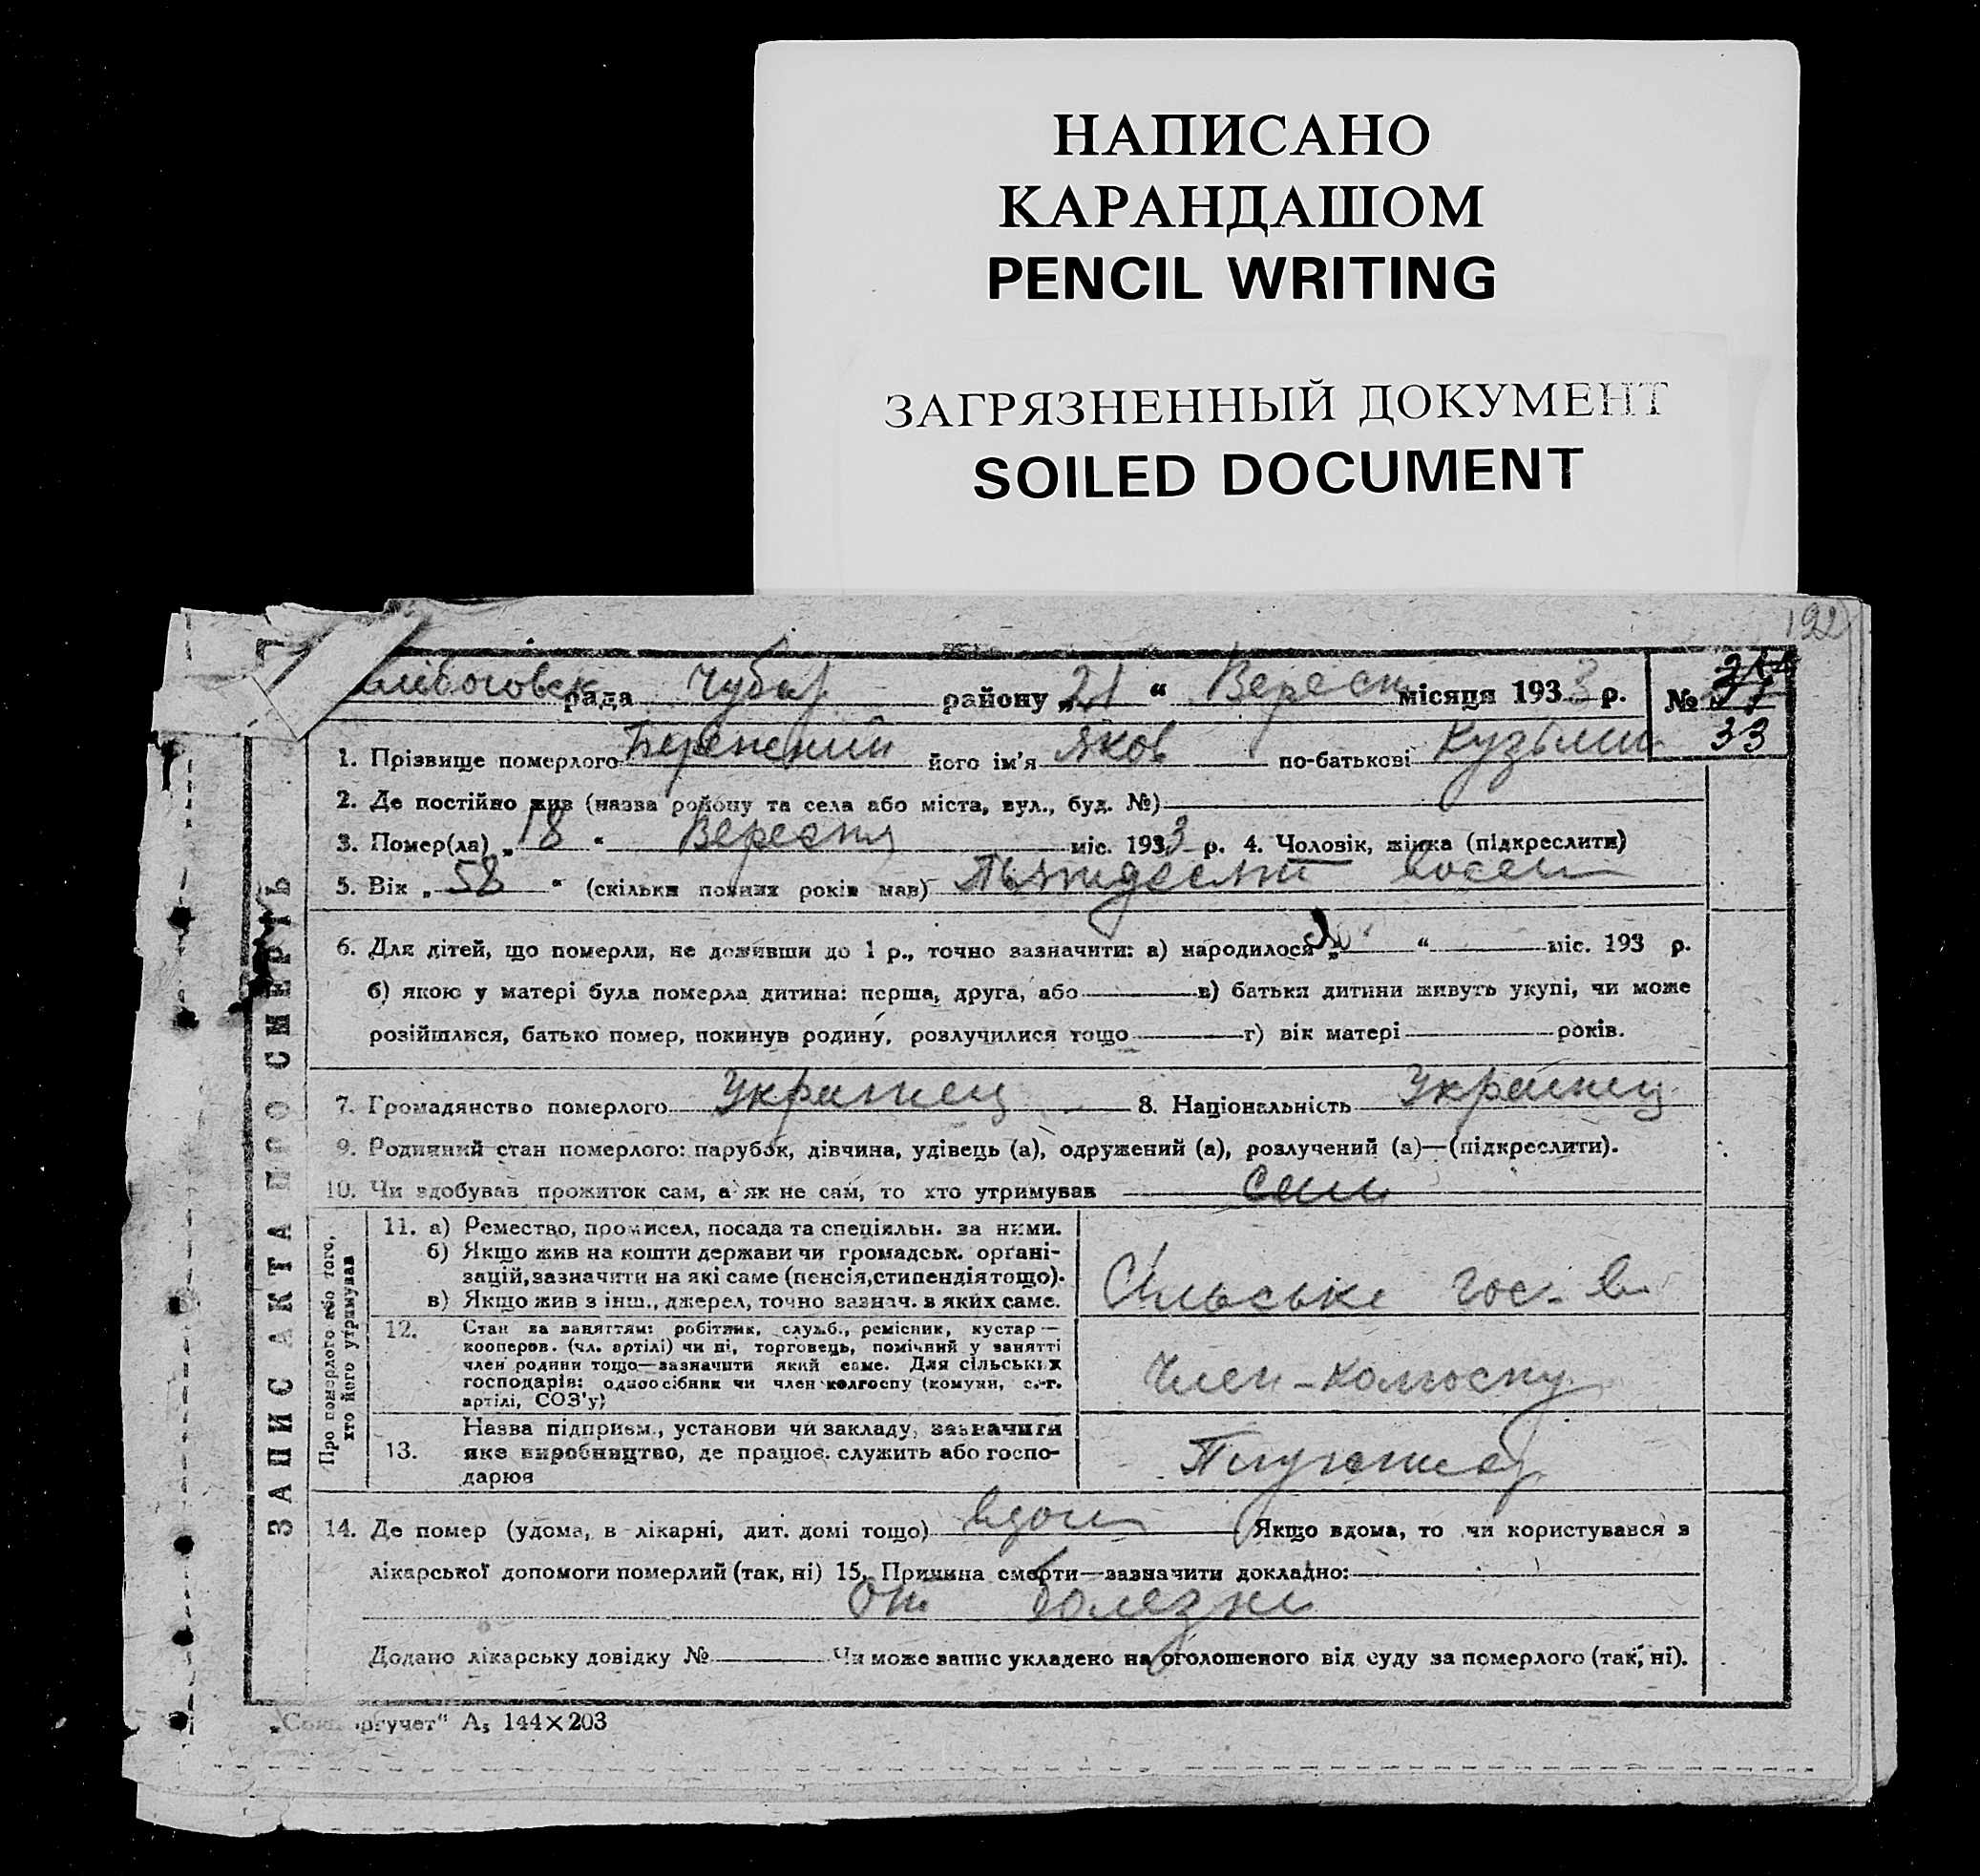 НАПИСАНО
КАРАНДАШОМ
PENCIL WRITING
ЗАГРЯЗНЕННЫЙ ДОКУМЕНТ
SOILED DOCUMENT
192
рада Чубар району „21 “ Вересн місяця 1933 р. №
33
1. Прізвище померлого його ім'я Яков по-батькові Кузьмич
2. Де постійно жив (назва району та села або міста, вул., буд. №)
3. Помер(ла) „18 “ Вересня міс. 1933 р. 4. Чоловік, жінка (підкреслити)
5. Вік „ 58 “ (скільки повних років мав) Пьятидесят восем
6. Для дітей, що померли, не доживши до 1 р., точно зазначити: а) народилося „ “ міс. 193 р.
б) якою у матері була померла дитина: перша, друга, або в) батьки дитини живуть укупі, чи може
розійшлися, батько помер, покинув родину, розлучилися тощо г) вік матері років.
7. Громадянство померлого Украинец 8. Національність Украинец
9. Родинний стан померлого: парубок, дівчина, удівець (а), одружений (а), розлучений (а)—(підкреслити).
10. Чи здобував прожиток сам, а як не сам, то хто утримував сам
ЗАПИСАКТА ПРО СМЕРТЬ
Про померлого або того,
хто його утримував
11. а) Ремество, промисел, посада та спеціяльн. за ними.
б) Якщо жив на кошти держави чи громадськ. орґані-
зацій, зазначити на які саме (пенсія, стипендія тощо).
в) Якщо жив з інш., джерел, точно зазнач. в яких саме.
Сільське гос-во
12. Стан за заняттям: робітник, служб., ремісник, кустар—
кооперов. (чл. артілі) чи ні, торговець, помічний у занятті
член родини тощо—зазначити який саме. Для сільських
господарів: одноосібник чи член колгоспу (комуни, с.-г.
артілі, СОЗ'у)
Член-колгоспу
13. Назва підприєм., установи чи закладу, зазначити
яке виробництво, де працює, служить або госпо-
дарює
14. Де помер (удома, в лікарні, дит. домі тощо) вдома Якщо вдома, то чи користувався з
лікарської допомоги померлий (так, ні) 15. Причина смерти—зазначити докладно:
От болезни
Додано лікарську довідку № Чи може запис укладено на оголошеного від суду за померлого (так, ні).
А₅ 144×203